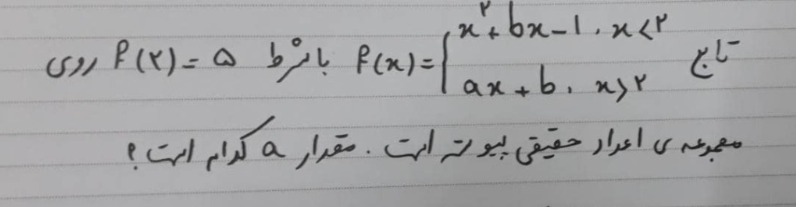 تابع f(x) = { x² + bx - 1 , x < ۲ با شرط f(۲) = ۵ روی
ax + b , x > ۲
مجموعه ی اعداد حقیقی پیوسته است . مقدار a کدام است ؟